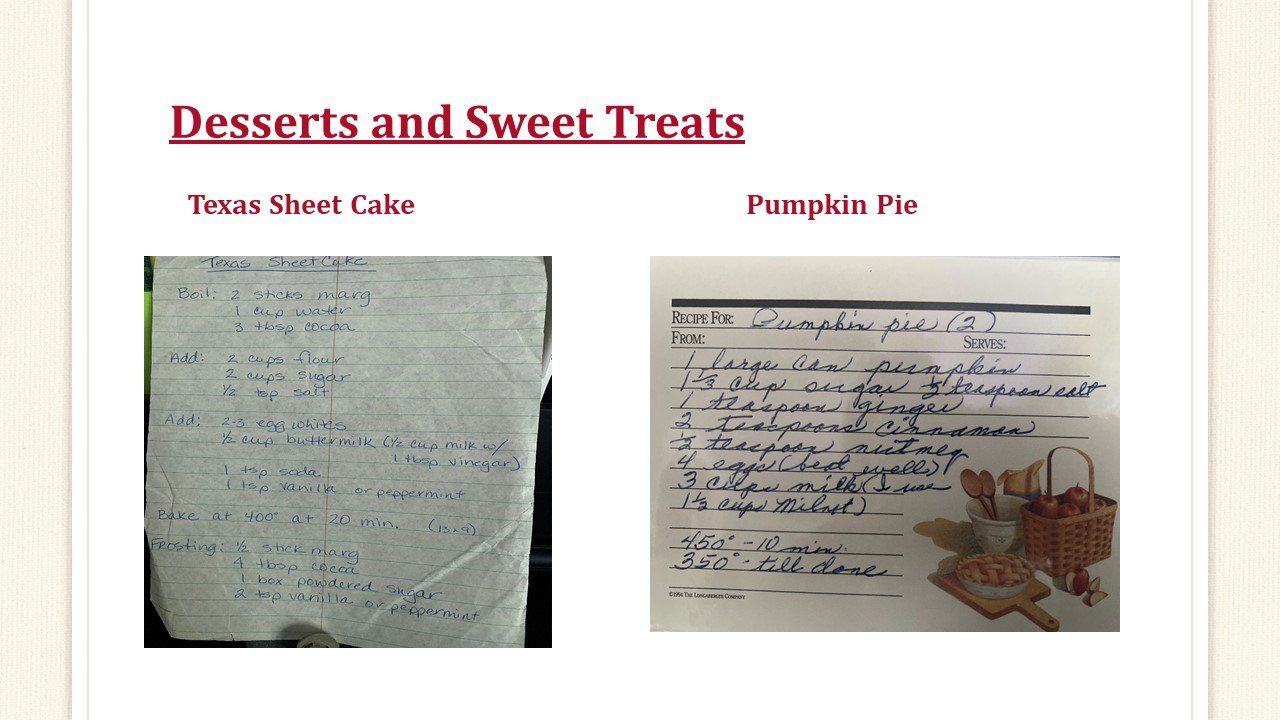 Desserts and Sweet Treats
Texas Sheet Cake
Texas Sheet Cake
Boil: 2 sticks marg
1 cup water
3 tbsp cocoa
Add: 2 cups flour
2 cups sugar
1/2 tsp salt
Add: 2-3 egg whites
1/2 cup buttermilk (1/2 cup milk w/
1 tbsp vinegar)
1 tsp soda
1 tsp vanilla or peppermint
Bake at 400° at 20 min. (13x9)
Frosting: 1/2 stick marg
4 tbsp cocoa
1 box powdered sugar
2 tsp vanilla or peppermint
Pumpkin Pie
RECIPE FOR: Pumpkin pie (2)
FROM: SERVES:
1 large can pumpkin
1 1/3 cup sugar 1/2 teaspoon salt
1 teaspoon ginger
2 teaspoons cinnamon
1/2 teaspoon nutmeg
4 eggs (beat well)
3 cups milk (I use
1 1/2 cups Milnot)
450° - 10 min.
350° - till done
©1994 THE LONGABERGER COMPANY